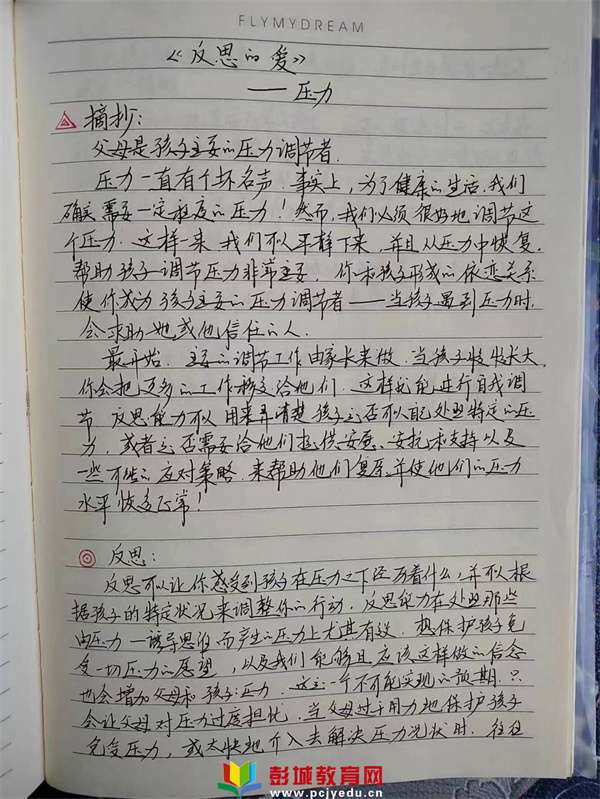 FLYMYDREAM
《反思的爱》
——压力
摘抄：
父母是孩子主要的压力调节者.
压力一直有个坏名声.事实上,为了健康的生活,我们
确实需要一定程度的压力！然而,我们必须很好地调节这
个压力.这样一来,我们可以平静下来,并且从压力中恢复.
帮助孩子调节压力非常主要.你和孩子形成的依恋关系
使你成为孩子主要的压力调节者——当孩子遇到压力时,
会求助她或他信任的人.
最开始.主要的调节工作由家长来做.当孩子慢慢长大,
你会把更多的工作移交给他们.这样就能进行自我调
节.反思能力可以用来弄清楚孩子是否可以自己处理特定的压
力,或者是否需要给他们提供安慰、安抚和支持以及
一些可能的应对策略.来帮助他们复原并使他们的压力
水平恢复正常！
反思：
反思可以让你感受到孩子在压力之下经历着什么,并可以根
据孩子的特定状况来调整你的行动.反思能力在处理那些
由压力—诱导思维而产生的压力上尤其有效.想保护孩子免
受一切压力的愿望,以及我们能够且应该这样做的信念
也会增加父母和孩子压力.这是一个不可能实现的预期.只
会让父母对压力过度担忧.当父母过于用力地保护孩子
免受压力,或太快地介入去解决压力状况时.往往
彭城教育网
www.pcjyedu.cn